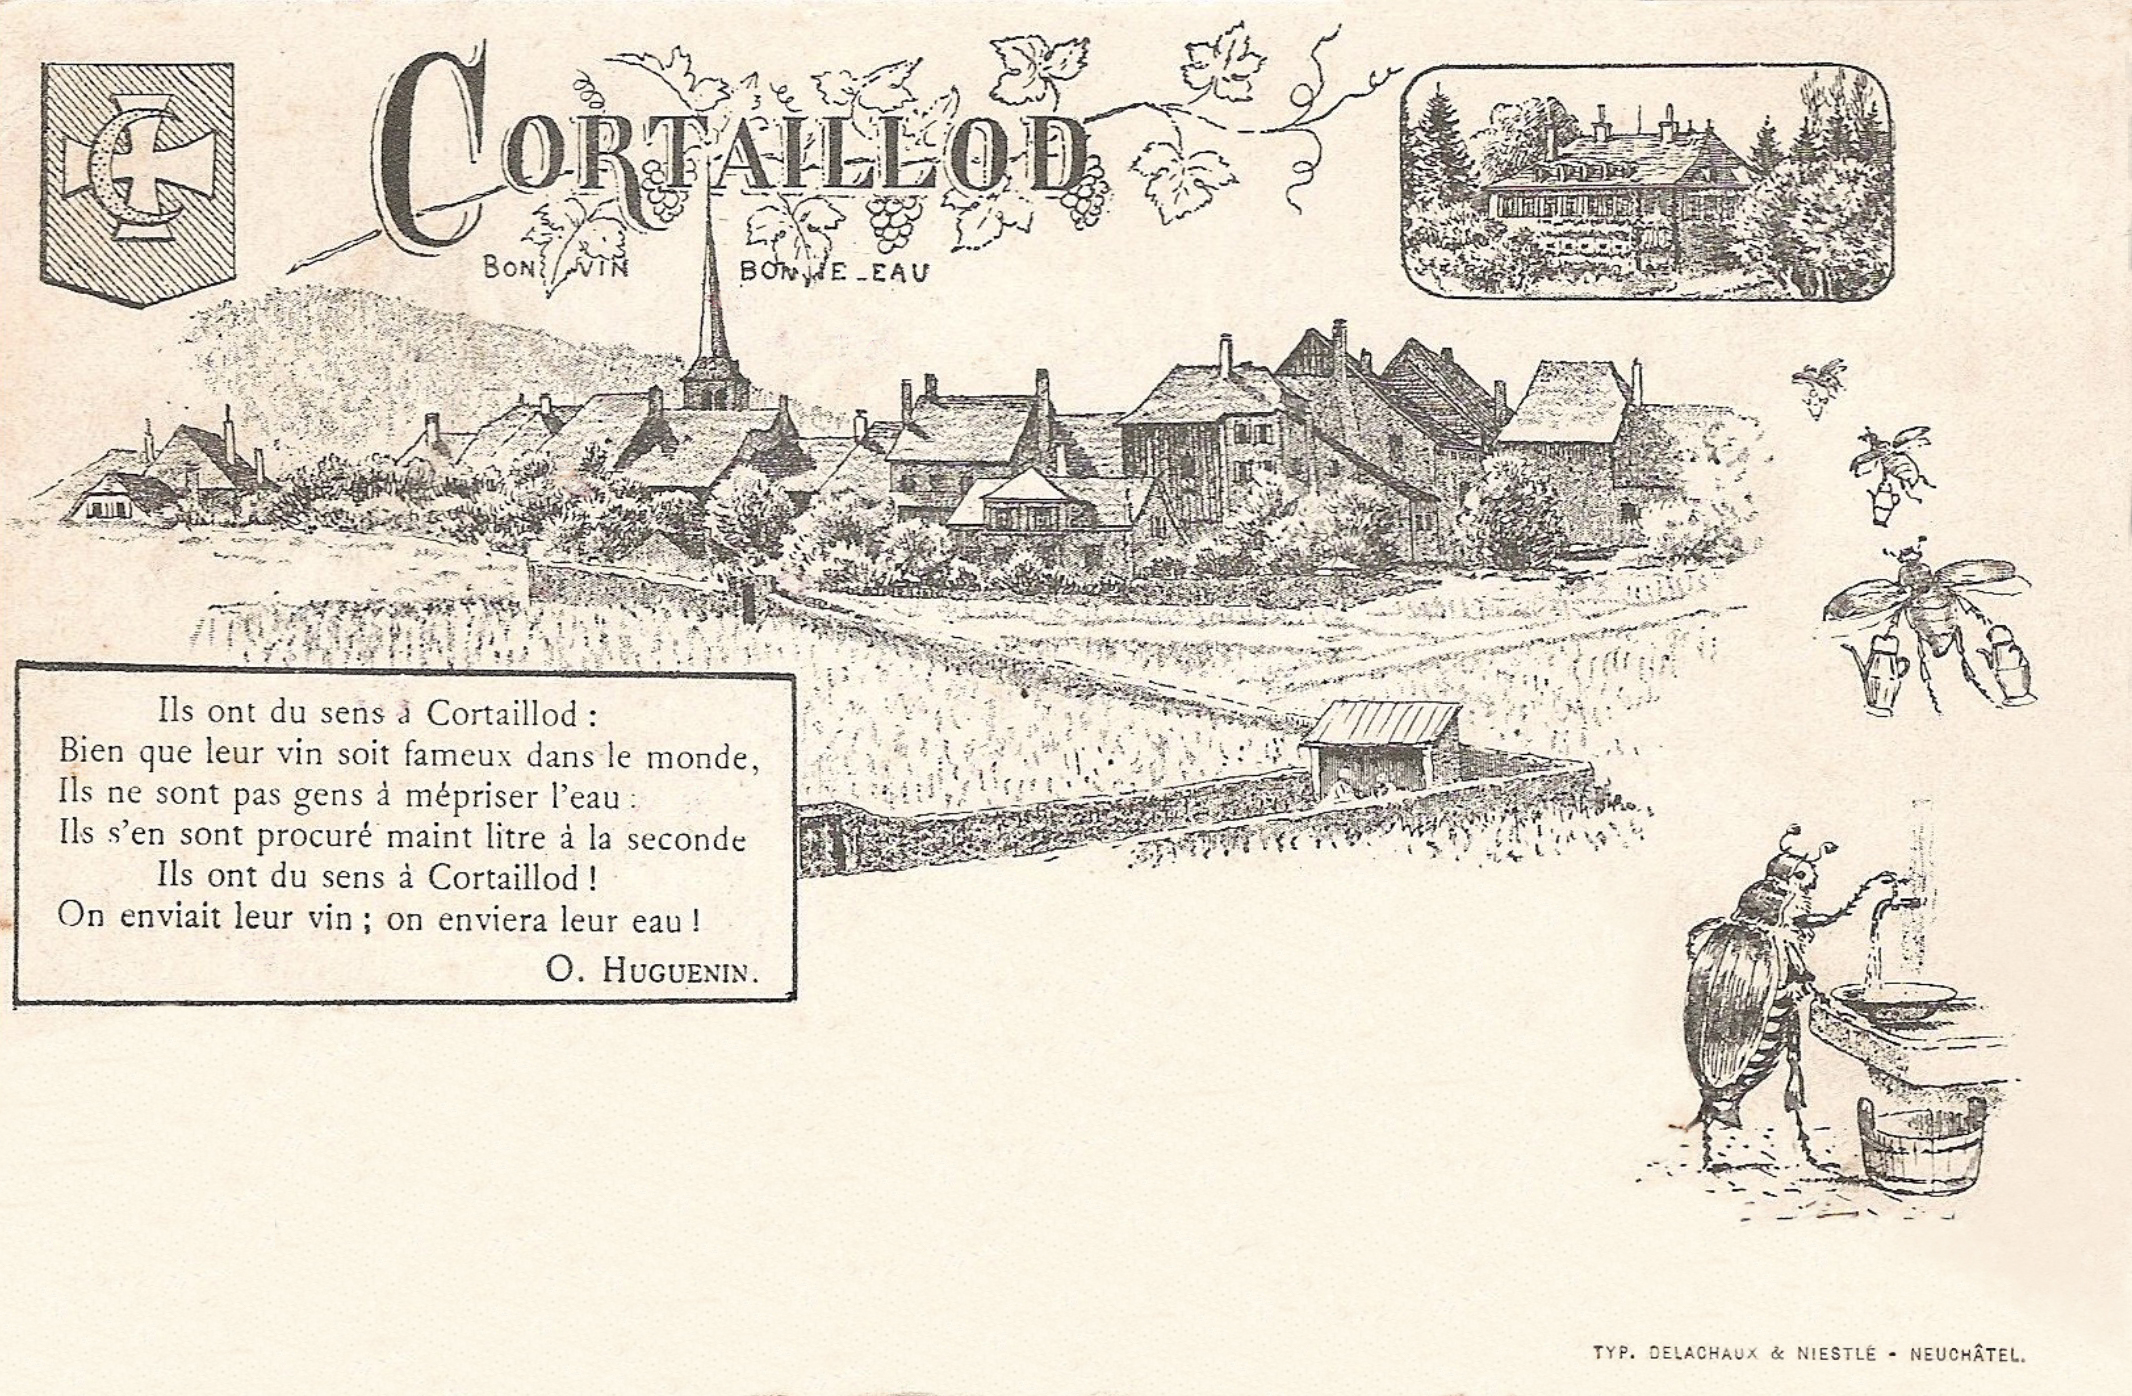 CORTAILLOD
BON VIN BONNE-EAU
Ils ont du sens à Cortaillod :
Bien que leur vin soit fameux dans le monde,
Ils ne sont pas gens à mépriser l'eau :
Ils s'en sont procuré maint litre à la seconde
Ils ont du sens à Cortaillod !
On enviait leur vin ; on enviera leur eau !
O. HUGUENIN.
TYP. DELACHAUX & NIESTLÉ - NEUCHÂTEL.